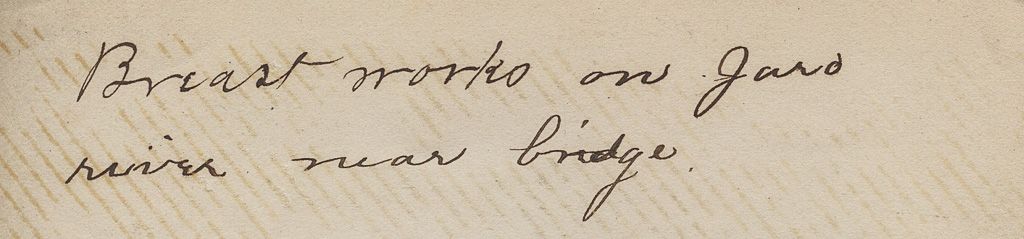 Breast works on Jaro
river near bridge.